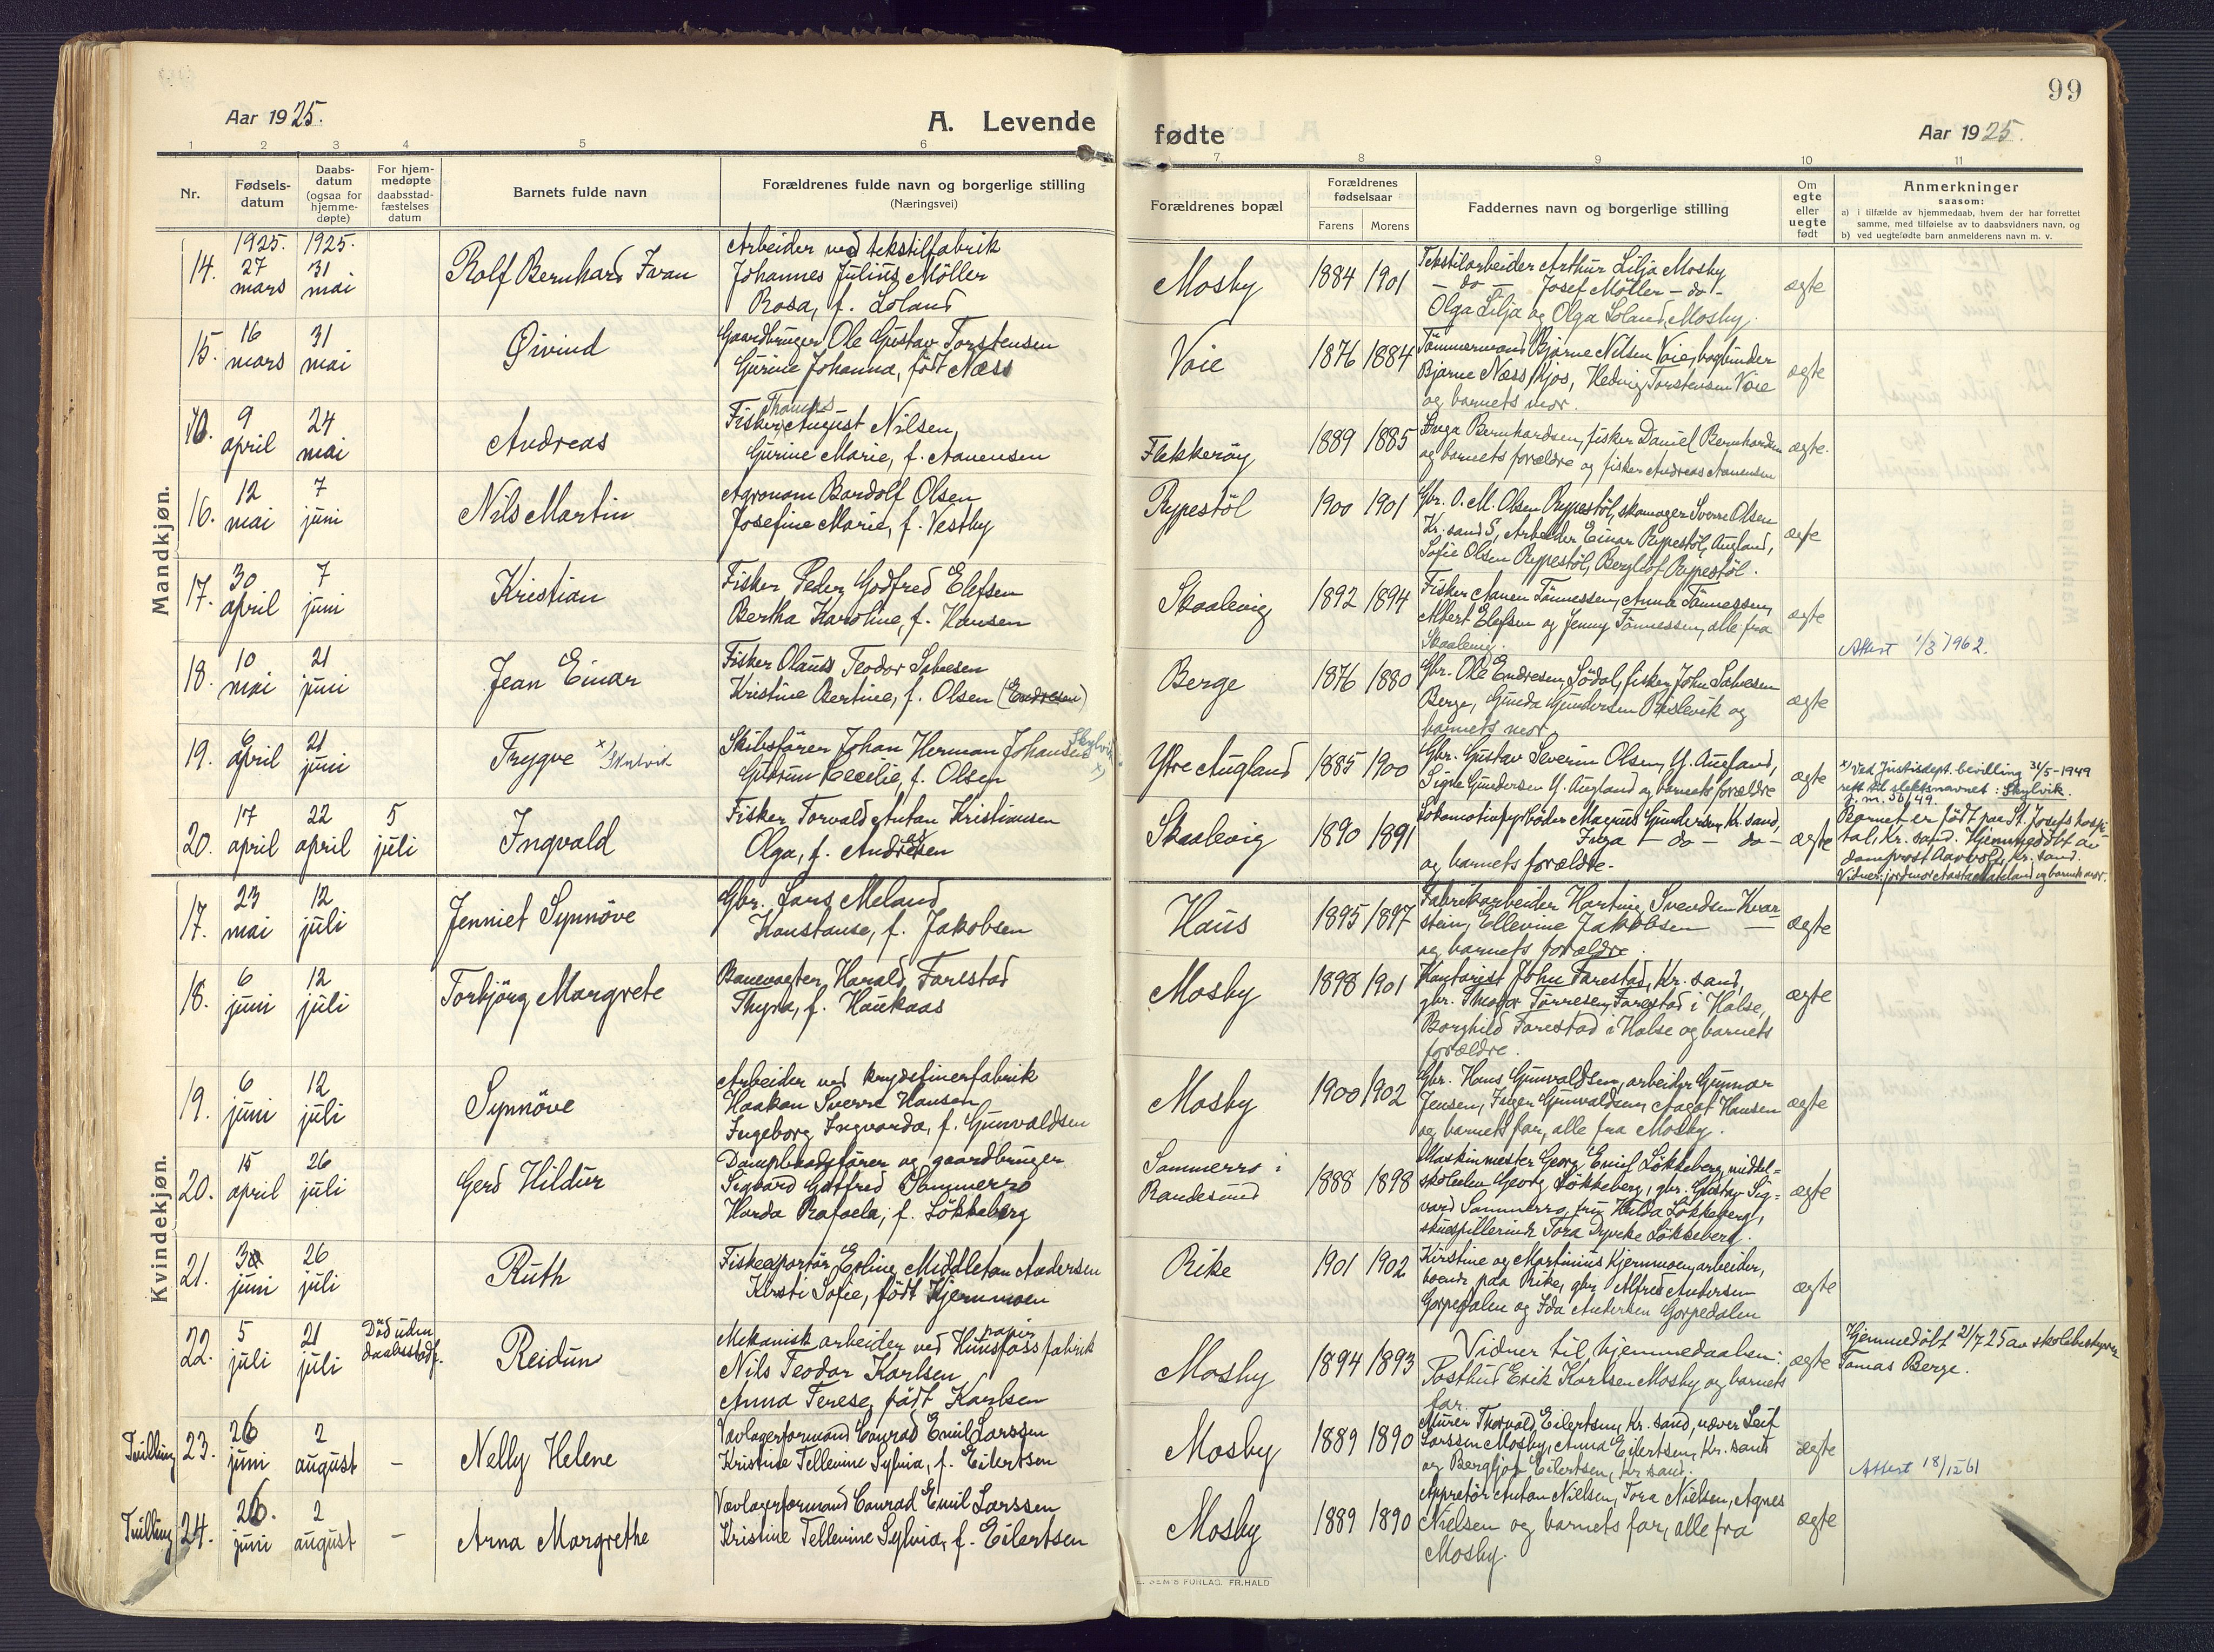 99
Aar 1925.
A. Levende
fødte
Aar 1925.
1 2 3 4 5 6 7 8 9 10 11
Nr.
Fødsels-
datum
Daabs-
datum
(ogsaa for
hjemme-
døpte)
For hjem-
medøpte
daabsstad-
fæstelses
datum
Barnets fulde navn
Forældrenes fulde navn og borgerlige stilling
(Næringsvei)
Forældrenes bopæl
Forældrenes
fødselsaar
Farens Morens
Faddernes navn og borgerlige stilling
Om
egte
eller
uegte
født
Anmerkninger
saasom:
a) i tilfælde av hjemmedaab, hvem der har forrettet
samme, med tilføielse av to daabsvidners navn, og
b) ved uegtefødte barn anmelderens navn m. v.
Mandkjøn.
14.
1925.
27
mars
1925.
31
mai
Rolf Bernhard
Arbeider ved tekstilfabrik
Johannes Julius Möller
Rosa, f. Löland
Mosby
1884 1901
Tekstilarbeider Arthur Lilja Mosby
- do - Josef Möller - do -
Olga Lilja og Olga Löland, Mosby.
ægte
15.
16
mars
31
mai
Øivind
Gaardbruger Ole Gustav Torstensen
Gurine Johanna, född Næss
Voie
1876 1884
Tömmermand Bjarne Nilsen Voie, bogbinder
Bjarne Næss, Kjos, Hedvig Torstensen Voie
og barnets mor.
ægte
9
april
24
mai
Andreas
Thomas
Fisker August Nilsen,
Gurine Marie, f. Aanensen
Flekkeröy
1889 1885
Inga Bernhardsen, fisker Daniel Bernhardsen
og barnets forældre og fisker Andreas Aanensen
ægte.
16.
12
mai
7
juni
Nils Martin
Agronom Bardolf Olsen
Josefine Marie, f. Vestby
Rypestöl
1900 1901
Gbr. O. M. Olsen Rypestöl, skomager Sverre Olsen
Kr.sand S, Arbeider Einar Rypestöl, Augland,
Sofie Olsen Rypestöl, Bergliot Rypestöl.
ægte
17.
30
april
7
juni
Kristian
Fisker Peder Godfred Elefsen
Bertha Karoline, f. Hansen
Skaalevig
1892 1894
Fisker Aanen Tönnessen, Anna Tönnessen,
Albert Elefsen og Jenny Tönnessen, alle fra
Skaalevig.
ægte
Attest 1/3 1962.
18.
10
mai
21
juni
Jean Einar
Fisker Olaus Teodor Salvesen
Kristine Bertine, f. Olsen (Endresen)
Berge
1876 1880
Gbr. Ole Endresen, Södal, fisker John Salvesen
Berge, Gunda Gundersen og
barnets mor
ægte
19.
6
april
21
juni
Trygve x) Skylvik
Skibsförer Johan Herman Johansen Skylvik x)
Gudrun Cecilie, f. Olsen
Ytre Augland
1885 1900
Gbr. Gustav Severin Olsen, Y. Augland,
Signe Gundersen Y. Augland og barnets forældre
ægte
x) Ved Justisdept. bevilling 31/5-1949
rett til slektsnavnet: Skylvik.
j. m. 56/49.
20.
17
april
22
april
5
juli
Ingvald
Fisker Torvald Antan Kristiansen
Olga, f. Andresen
Skaalevig
1890 1891
Lokomotivfyrböder Magnus Gundersen, Kr. sand,
Inga - do - do -
og barnets forældre.
ægte
Barnet er født paa St. Josefs hospi-
tal, Kr. sand. Hjemmedöbt av
domprost Aarvold, Kr. sand.
Vidner: jordmor og barnets mor.
Kvindekjøn.
17.
23
mai
12
juli
Jenniet Synnöve
Gbr. Lars Meland
Konstanse, f. Jakobsen
Haus
1895 1897
Fabrikarbeider Hartvig Svendsen Kvar-
stein, Ellevine Jakobsen —
og barnets forældre.
ægte
18.
6
juni
12
juli
Torbjörg Margrete
Banevogter Harald Farestad
Thyra, f. Haukaas
Mosby
1898 1901
Kontorist John Farestad, Kr. sand,
gbr. Tönnesen, Farestad i Halse,
Borghild Farestad i Halse og barnets
forældre.
ægte
19.
6
juni
12
juli
Synnöve
Arbeider ved krydsfinerfabrik
Haakon Sverre Hansen
Ingeborg Ingvarda, f. Gunvaldsen
Mosby
1900 1902
Gbr. Hans Gunvaldsen, arbeider Gunnar
Jensen, Inger Gunvaldsen, Aagot Hansen
og barnets far, alle fra Mosby.
ægte
20.
15
april
26
juli
Gerd Hildur
Dampbaadsförer og gaardbruger
Sigvard Gotfred Sommerro
Harda Rafaela, f. Lökkeberg
Sommerro i
Randesund
1888 1898
Maskinmester Georg Emil Lökkeberg, middel-
skoleelev Georg Lökkeberg, gbr. Gustav Sig-
vard Sommerro, fru Hulda Lökkeberg,
skuespillerinde Tora Dyveke Lökkeberg.
ægte
21.
juni
26
juli
Ruth
Fiskeexportör Middleton Andersen
Kirsti Sofie, född Kjernmoen
Rike
1901 1902
Kirstine og Martinius Kjernmoen, arbeider,
boende paa Rike, gbr. Alfred Andersen
Gorpedalen og Ida Andersen Gorpedalen
ægte
22.
5
juli
21
juli
Död uden
daabsstadf.
Reidun
Mekanisk arbeider ved Hunsfoss papir fabrik
Nils Teodor Karlsen
Anna Terese, född Karlsen
Mosby
1894 1893
Vidner til hjemmedaaben:
Postbud Erik Karlsen Mosby og barnets
far.
ægte
Hjemmedöbt 21/7 25 av skolebestyrer
Tomas Berge.
Tvilling 23.
26
juni
2
august
–
Nelly Helene
Vavlagerformand Conrad Emil Larssen
Kristine Tellevine Sylvia, f. Eilertsen
Mosby
1889 1890
Murer Thorvald Eilertsen, Kr. sand, væver Leif
Larssen Mosby, Anna Eilertsen, Kr. sand
og Bergljot Eilertsen, Kr. sand.
ægte
Attest 18/12 61
Tvilling 24.
26.
juni
2
august
–
Arna Margrethe
Vavlagerformand Conrad Emil Larssen
Kristine Tellevine Sylvia, f. Eilertsen
Mosby
1889 1890
Appretör Antan Nielsen, Tora Nielsen, Agnes
Nielsen og barnets far, alle fra
Mosby.
ægte
SEM'S FORLAG. FR.HALD